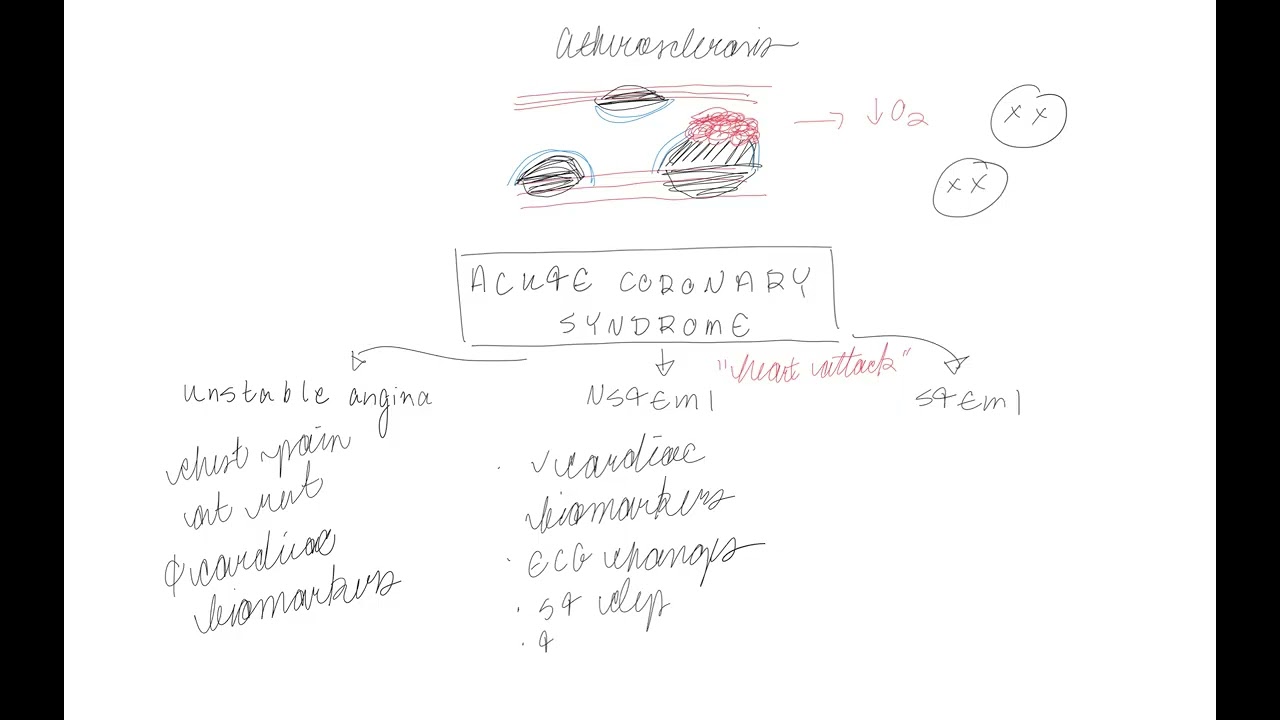 Atherosclerosis
→ ↓O2
x x
x x
ACUTE CORONARY
SYNDROME
"heart attack"
unstable angina
NSTEMI
STEMI
chest pain
at rest
∅ cardiac
biomarkers
· ✓cardiac
biomarkers
· ECG changes
· ST dep
· T